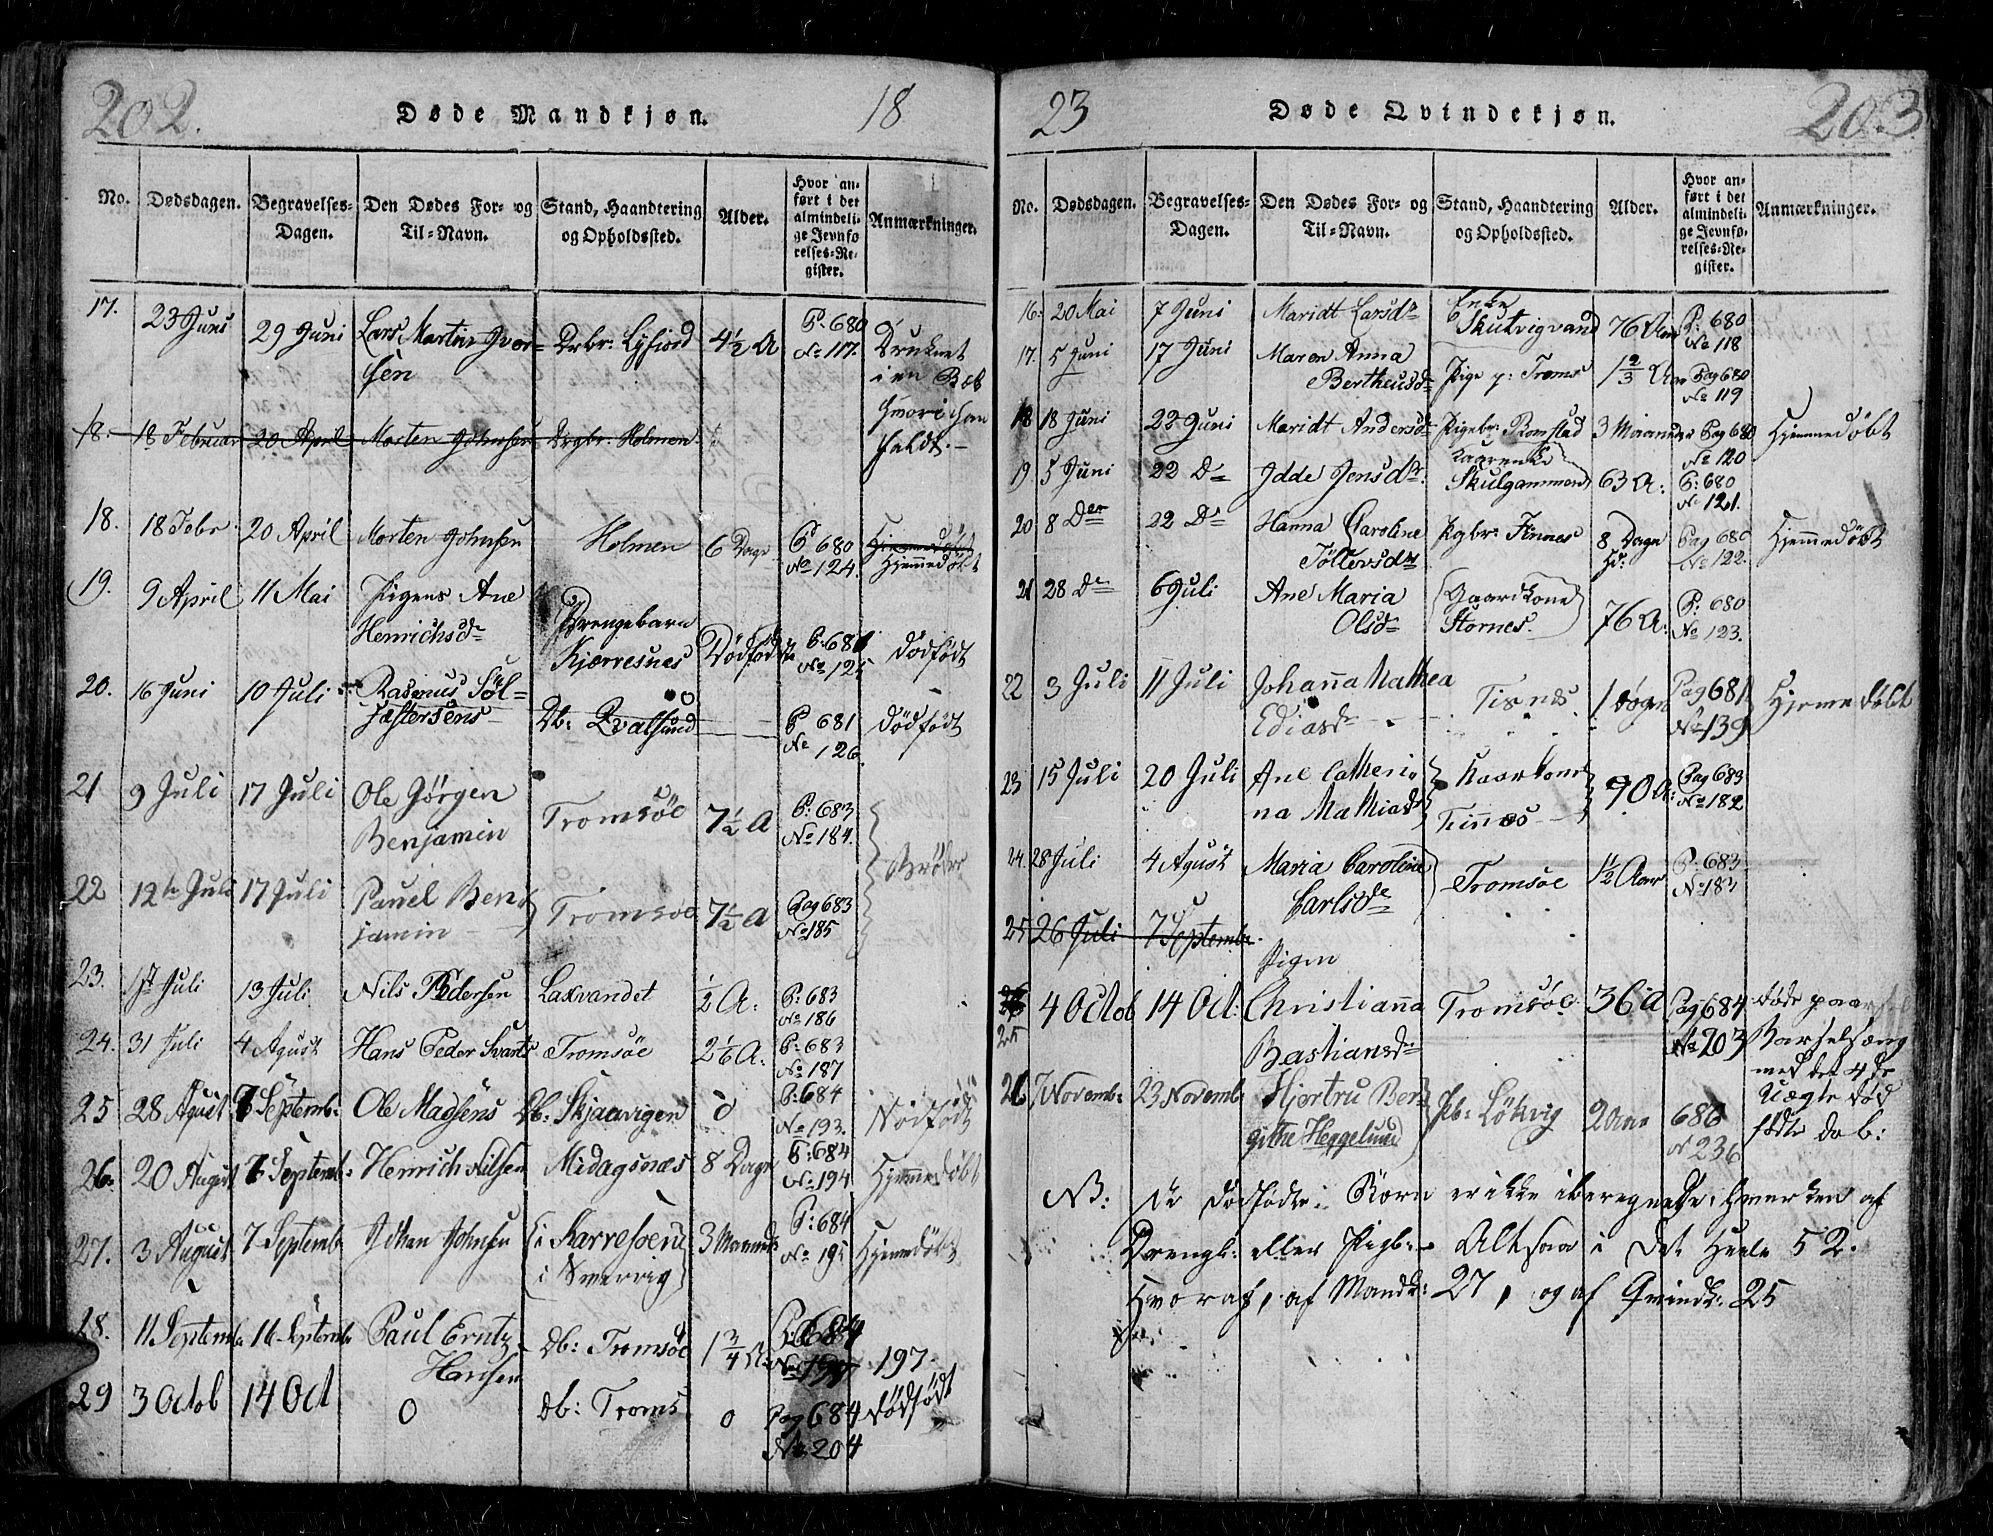 202.
Døde Mandkjøn.
18
No.
Dødsdagen.
Begravelses-Dagen.
Den Dødes For- og Til-Navn.
Stand, Haandtering og Opholdssted.
Alder.
Hvor anført i det almindelige Jevnførelses-Register.
Anmærkninger.
17. 23 Juni 29 Juni Lars Martin Iver= Drbr: Lyfiord 4½ A P. 680 Druknet
sen No 117. i en Bæk
hvori han
faldt.
18. 18 Februar 20 April Morten Johnsen Drgbr: Holmen
18. 18 Febr. 20 April Morten Johnsen Holmen 6 Dage P 680 Hjemmedøbt
No 124. Hjemmedøbt
19. 9 April 11 Mai Pigens Ane Drengebarn Dødfødt P: 681 dødfødt
Henrichsd Kjærresnes No 125
20. 16 Juni 10 Juli Rasmus Søl= Db: Qvalsund P 681 dødfødt
fæstersens No 126.
21 9 Juli 17 Juli Ole Jørgen Tromsøe 7½ A P: 683
Benjamin No 184. Brødre
22 12te Juli 17 Juli Pauel Ben Tromsøe 7½ A Pag 683
jamin No 185
23. 1st Juli 13 Juli Nils Pedersen Laxvandet ½ A. P: 683
No 186
24. 31 Juli 4 Agust Hans Peder Svarts Tromsøe 2⅙ A. P: 683
No 187
25 28 Agust 7 Septemb: Ole Madsens Db: Skjaavigen 0 P: 684 Dødfødt
No 193.
26. 20 August 7 Septemb: Henrich Nilsen Midagsnæs 8 Dage P: 684 Hjemmedøbt
No 194
27. 3 August 7 Septemb Johan Johnsen i Karresoen 3 Maaneder P: 684 Hjemedøbt
i No 195
28. 11 Septemb 14 Septemb Paul Erntz Db: Tromsøe 1¾ A P: 684
Hansen No 197 197.
29 3 Octob 14 Oct 0 db: Troms 0 Pag 684 dødfødt
No. 204
23
Døde Qvindekjøn.
203
No.
Dødsdagen.
Begravelses-Dagen.
Den Dødes For- og Til-Navn.
Stand, Haandtering og Opholdssted.
Alder.
Hvor anført i det almindelige Jevnførelses-Register.
Anmærkninger.
16. 20 Mai 7 Juni Maridt Larsdr Enke Skutvigvand 76 Aar P: 680
No 118
17. 5 Juni 17 Juni Maren Anna Pige p: Troms 1⅔ Aar Pag 680
Bertheusdr No 119
18 18 Juni 22 Juni Maridt Andersd Pigebr: Ramstad 3 Maaneder Pag 680 Hjemmedøbt
No 120
19 5 Juni 22 D Idde Jensdr. Skulgammen 63 A: P: 680
No 121.
20 8 Der 22 D Hanna Caroline Pgbr: Finnes 8 Dage Pag 680 Hjemmedøbt
Töllevsdr No 122.
21 28 D 6 Juli Ane Maria Gaardkone 76 A: P: 680
Olsdr Stornes. No 123.
22 3 Juli 11 Juli Johanna Mathea Tisnes 1 døgn Pag 681 Hjemedøbt
Ediasd No 139
23 15 Juli 20 Juli Ane Catheri Kaarkone 90 A: Pag 683
na Mathiasdr Tinnæs No 182
24. 28 Juli 4 Agust Maria Caroline Tromsøe 1½ Aar P: 683
Carlsdr No 183
25 26 Juli 7 Septemb.
Pigen
25 4 Octob 14 Oct: Christianna Tromsøe 36 A Pag 684 døde paa
Bastiansd No 203 Barselseng
med det 4de
Uægte død
fødte db:
26 7 Novemb: 23 Novemb Hjertru Ber Pb: Løkvig 2 Aar 686
githe Heggelund N 236
NB: De Dødfødte Børn er ikke iberegnede, hverken af
Drengb: eller Pigb: Altsaa i Det Heele 52.
Hvoraf, af Mandk: 27, og af Qvindk: 25